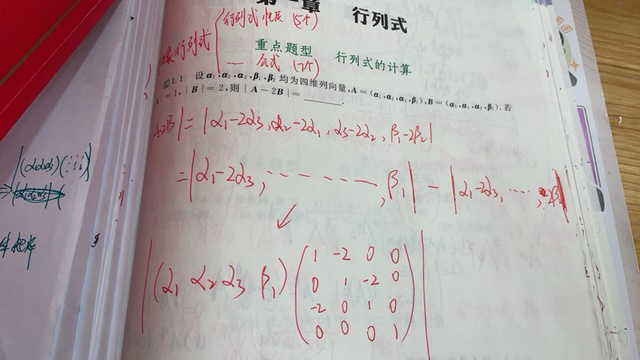 第一章 行列式
行列式性质(5个)
抽象行列式
公式(7个)
重点题型 行列式的计算
1.1 设 α₁,α₂,α₃,β₁,β₂ 均为四维列向量,A=(α₁,α₂,α₃,β₁),B=(α₃,α₁,α₂,β₂),若
|=1,|B|=2,则|A-2B|=______.
A-2B|=|α₁-2α₃,α₂-2α₁,α₃-2α₂,β₁-2β₂|
=|α₁-2α₃,……,β₁|-|α₁-2α₃,……,2β₂|
|(α₁ α₂ α₃ β₁)(1 -2 0 0
0 1 -2 0
-2 0 1 0
0 0 0 1)|